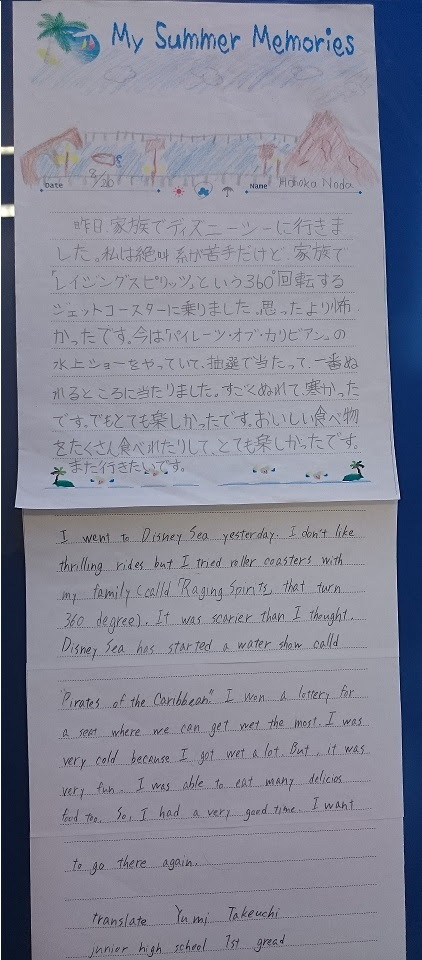 My Summer Memories
Date 8/20 Name Honoka Noda
昨日、家族でディズニーシーに行きま
した。私は絶叫系が苦手だけど、家族で
「レイジングスピリッツ」という360°回転する
ジェットコースターに乗りました。思ったより怖
かったです。今は「パイレーツ・オブ・カリビアン」の
水上ショーをやっていて、抽選で当たって、一番ぬ
れるところに当たりました。すごくぬれて、寒かった
です。でもとても楽しかったです。おいしい食べ物
をたくさん食べれたりして、とても楽しかったです。
また行きたいです。
I went to Disney Sea yesterday. I don't like
thrilling rides but I tried roller coasters with
my family (calld 「Raging Spirits」 that turn
360 degree). It was scarier than I thought.
Disney Sea has started a water show calld
"Pirates of the Caribbean." I won a lottery for
a seat where we can get wet the most. I was
very cold because I got wet a lot. But, it was
very fun. I was able to eat many delicios
food too. So, I had a very good time. I want
to go there again.
translate Yumi Takeuchi
junior high school 1st gread